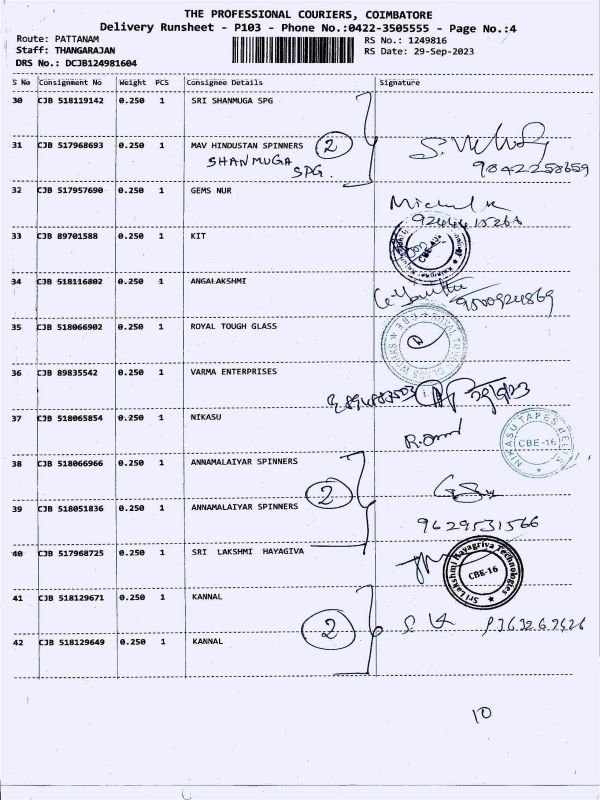 THE PROFESSIONAL COURIERS, COIMBATORE
Delivery Runsheet - P103 - Phone No.:0422-3505555 - Page No.:4
Route: PATTANAM
RS No.: 1249816
Staff: THANGARAJAN
RS Date: 29-Sep-2023
DRS No.: DCJB124981604
S No Consignment No Weight PCS Consignee Details Signature
30 CJB 518119142 0.250 1 SRI SHANMUGA SPG
31 CJB 517968693 0.250 1 MAV HINDUSTAN SPINNERS 2
SHANMUGA
SPG.
9842258659
32 CJB 517957690 0.250 1 GEMS NUR
33 CJB 89701588 0.250 1 KIT
34 CJB 518116802 0.250 1 ANGALAKSHMI
35 CJB 518066902 0.250 1 ROYAL TOUGH GLASS
36 CJB 89835542 0.250 1 VARMA ENTERPRISES
37 CJB 518065854 0.250 1 NIKASU
NIKASU TAPES BELTS
CBE-16
38 CJB 518066966 0.250 1 ANNAMALAIYAR SPINNERS
2
39 CJB 518051836 0.250 1 ANNAMALAIYAR SPINNERS
9629531566
40 CJB 517968725 0.250 1 SRI LAKSHMI HAYAGIVA
Sri Lakshmi Hayagriva Technologies
CBE-16
41 CJB 518129671 0.250 1 KANNAL
2
42 CJB 518129649 0.250 1 KANNAL
10